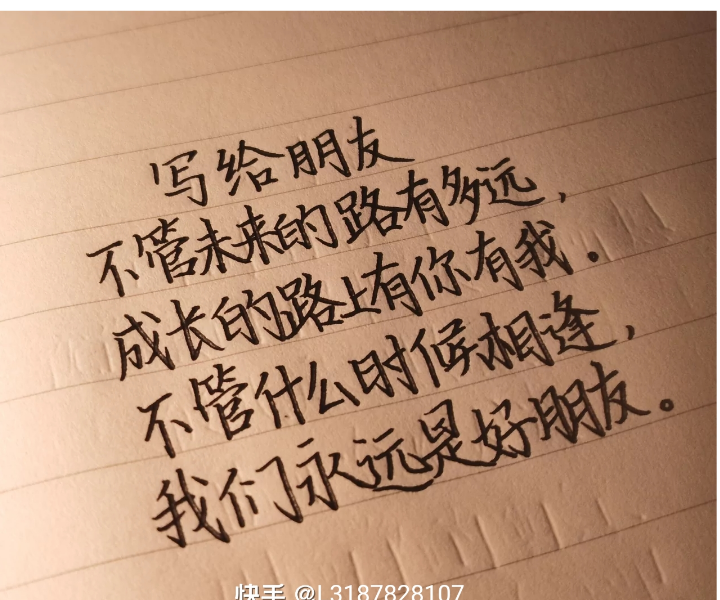 写给朋友
不管未来的路有多远，
成长的路上有你有我。
不管什么时候相逢，
我们永远是好朋友。
快手 @L3187828107